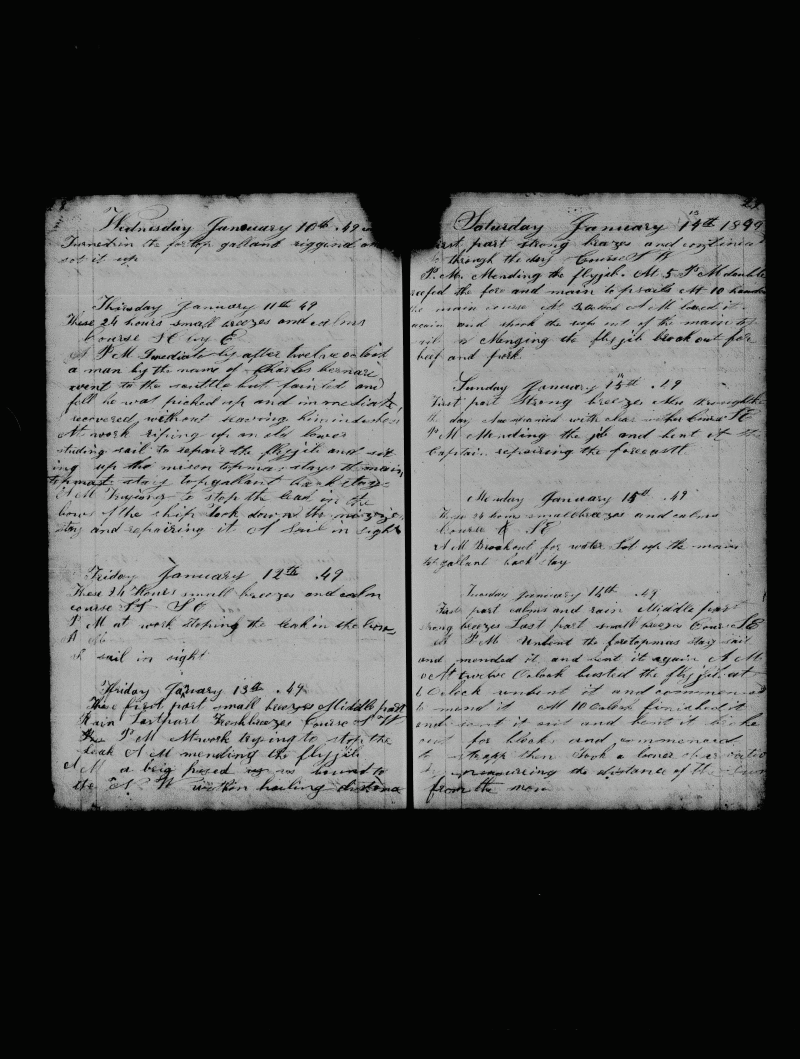 Wednesday January 10th .49
Turned in the foretop gallant riggend an
set it up
Thursday January 11th 49
These 24 hours small breezes and calms
Course S by E
A P M Imediately after twelve oclock
a man by the name of Charles
went to the scuttle but fainted and
fell he was picked up and immediatly
recovered without
At work riping up an old lower
studing sail to repair the flyjib and set
ing up the mison topmas stays the main
topmast stay topgallant back stays
A M to stop the leak in the
bows of the ship took down the
stay and repairing it A Sail in sight
Friday January 12th .49
These 24 Hours small breezes and calm
course SE
P M at work stoping the leak in the bow
A
A sail in sight
Friday January 13th .49
The first part small breezes Middle part
Rain Lastpart Freshbreezes Course
P M At work trying to stop the
leak A M mending the flyjib
A M a brig passed us bound to
the W within hailing distance
Saturday January 14th 1849
First part strong breezes and continued
through the day Course S W
P. M. Mending the flyjib. At 5 P M double
reefed the fore and main topsails At 10
the main course At A M it
again and the out of the main top
sail Menging the flyjib brock out for
beef and pork.
Sunday January 15th .49
First part Strong breezes Also through
the day with Course SE
P M Mending the jib and bent it the
Captain repairing the forecastl
Monday January 15th .49
These 24 hours small breezes and calms
Course SE
A M Brockout for water Sot up the main
topgallant back stay
Tuesday January 16th .49
First part calms and rain Middle part
strong breezes Last part small breezes Course SE
A P M Unbent the foretopmas stay sail
and mended it and bent it again A M
At twelve Oclock busted the flyjib at
6 Oclock unbent it and commenced
to mend it At 10 Oclock finished it
and sent it out and bent it
out for blocks and commenced
to strapp then Took a
measurring the distance of the Sun
from the moon